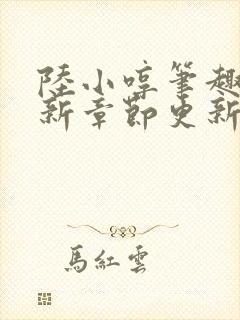 陸小啍筆趣
新章節更新
馬紅雲